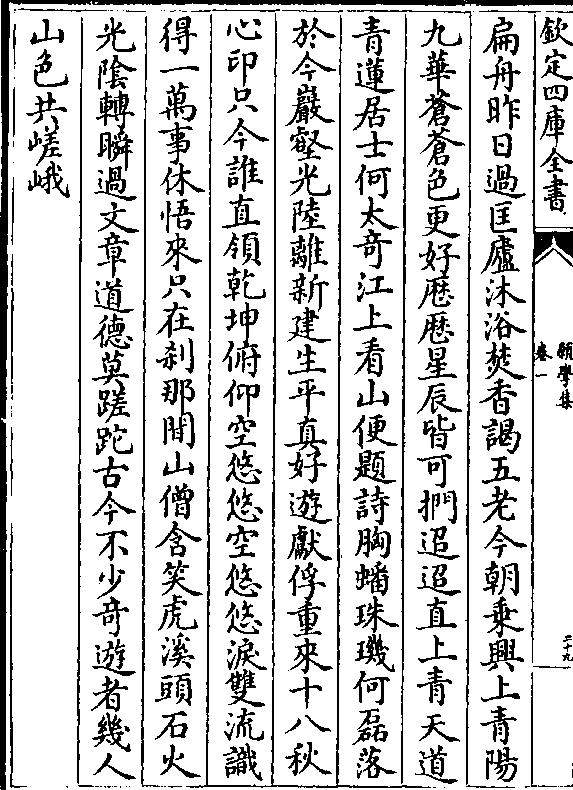 欽定四庫全書
願學集
卷一
二十九
扁舟昨日過匡廬沐浴焚香謁五老今朝乗興上青陽
九華蒼蒼色更好厯厯星辰皆可捫迢迢直上青天道
青蓮居士何太奇江上看山便題詩胸蟠珠璣何磊落
於今巖壑光陸離新建生平真好遊獻俘重來十八秋
心印只今誰直領乾坤俯仰空悠悠空悠悠淚雙流識
得一萬事休悟來只在刹那間山僧含笑虎溪頭石火
光陰轉瞬過文章道德莫蹉跎古今不少奇遊者幾人
山色共嵯峨